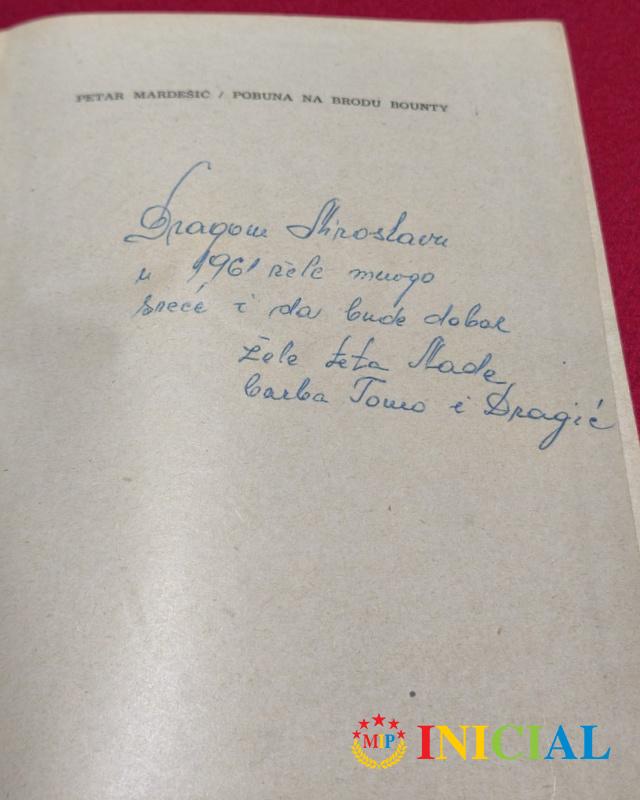 PETAR MARDEŠIĆ / POBUNA NA BRODU BOUNTY
Dragom Miroslavu
u 1961 žele mnogo
sreće i da bude dobar
žele teta Nade,
barba Tomo i Dragić
MIP INICIAL